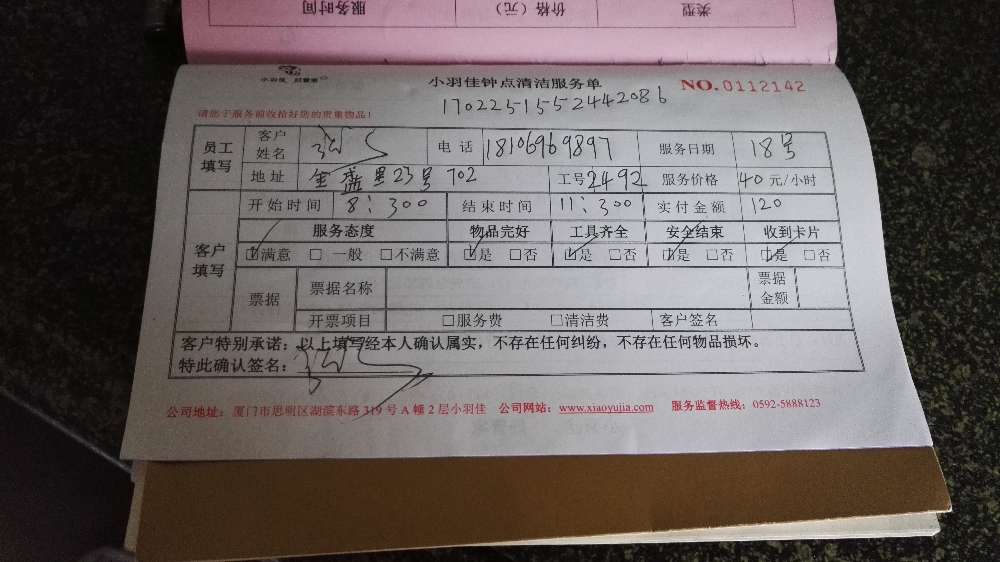 类型 价格（元） 服务时间
小羽佳
小羽佳钟点清洁服务单 NO.0112142
1702251552442086
请您于服务前收拾好您的贵重物品！
员工填写 客户姓名 电话 18106969897 服务日期 18号
地址 金盛里23号702 工号 2492 服务价格 40 元/小时
客户填写 开始时间 8:300 结束时间 11:300 实付金额 120
服务态度 物品完好 工具齐全 安全结束 收到卡片
☑满意 □一般 □不满意 ☑是 □否 ☑是 □否 ☑是 □否 ☑是 □否
票据 票据名称 票据金额
开票项目 □服务费 □清洁费 客户签名
客户特别承诺：以上填写经本人确认属实，不存在任何纠纷，不存在任何物品损坏。
特此确认签名：
公司地址：厦门市思明区湖滨东路319号A幢2层小羽佳 公司网站：www.xiaoyujia.com 服务监督热线：0592-5888123